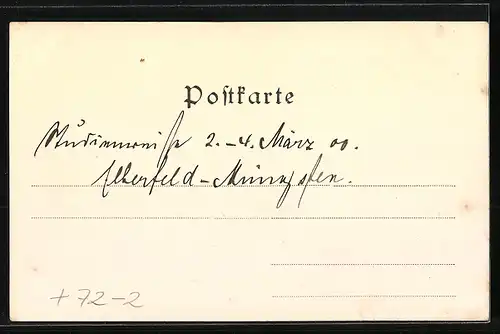 Postkarte
Studienreise 2.-4. März 00.
Elberfeld-Müngsten.
+72-2